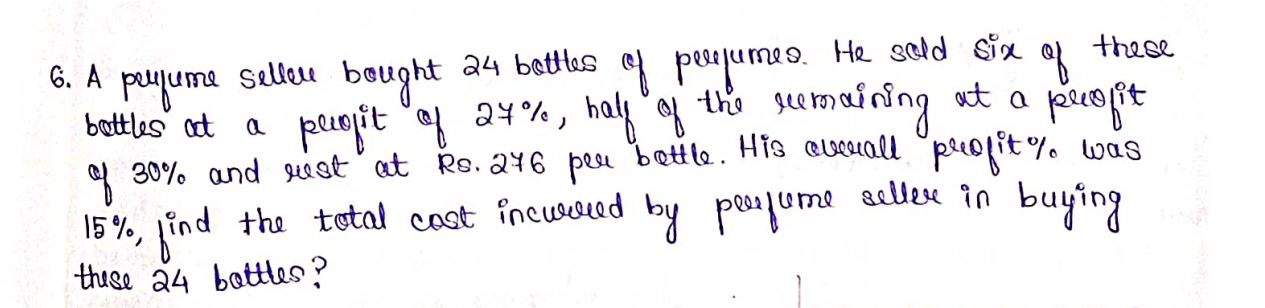 6. A perfume seller bought 24 bottles of perfumes. He sold six of these
bottles at a profit of 27%, half of the remaining at a profit
of 30% and rest at Rs. 276 per bottle. His overall profit% was
15%, find the total cost incurred by perfume seller in buying
these 24 bottles?